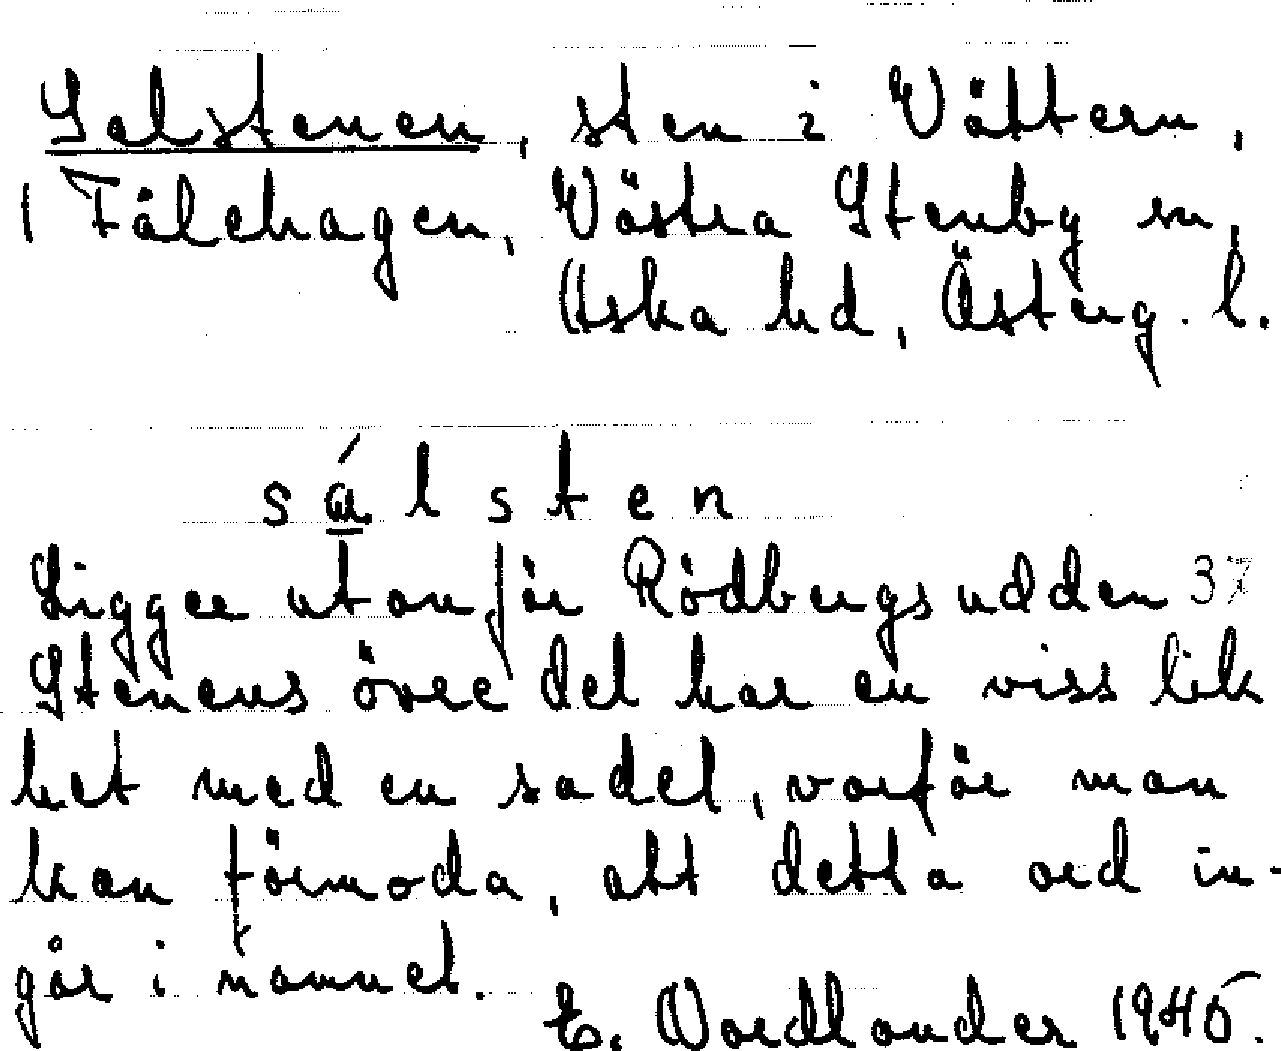 Salstenen, sten i Vättern,
Fålehagen, Västra Stenby sn,
Aska hd, Österg. l.
sálsten
Ligger utanför Rödbergsudden 37
Stenens övre del har en viss lik
het med en sadel, varför man
kan förmoda, att detta ord in-
går i namnet.
E. Nordlander 1945.